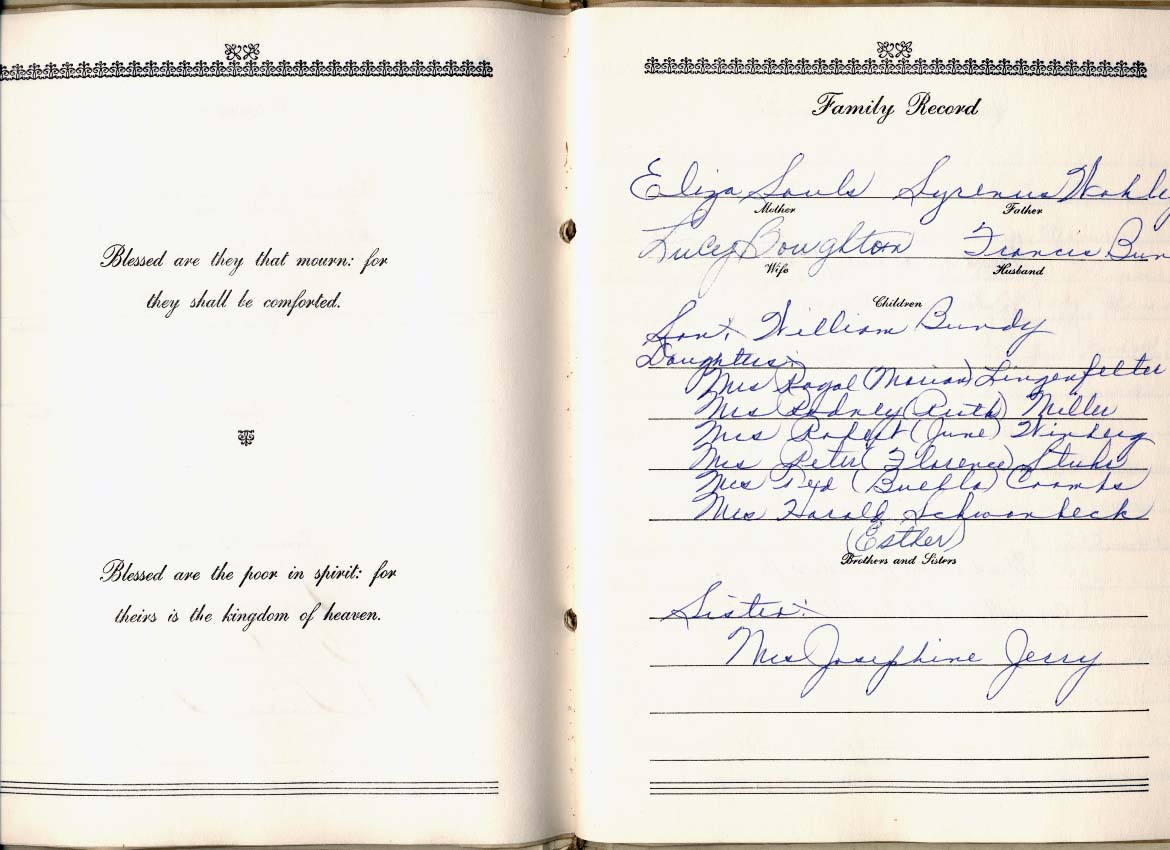 Blessed are they that mourn: for
they shall be comforted.
Blessed are the poor in spirit: for
theirs is the kingdom of heaven.
Family Record
Eliza Souls Syrenus
Mother Father
Lucy Boughton Francis Bun
Wife Husband
Children
Son: William Bundy
Daughters:
Mrs Royal (Marian) Lingenfelter
Mrs Rodney (Ruth) Miller
Mrs Robert (June) Winberg
Mrs Peter (Florence)
Mrs (Buehla) Coombs
Mrs Harold Schwanbeck
(Esther)
Brothers and Sisters
Sister:
Mrs Josephine Jerry